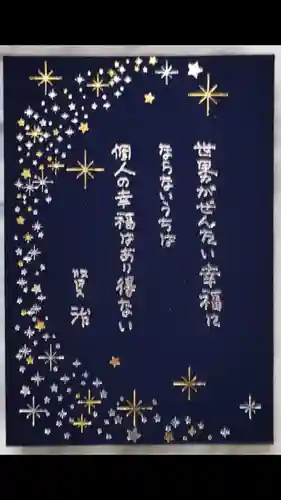 世界がぜんたい幸福に
ならないうちは
個人の幸福はあり得ない
賢治